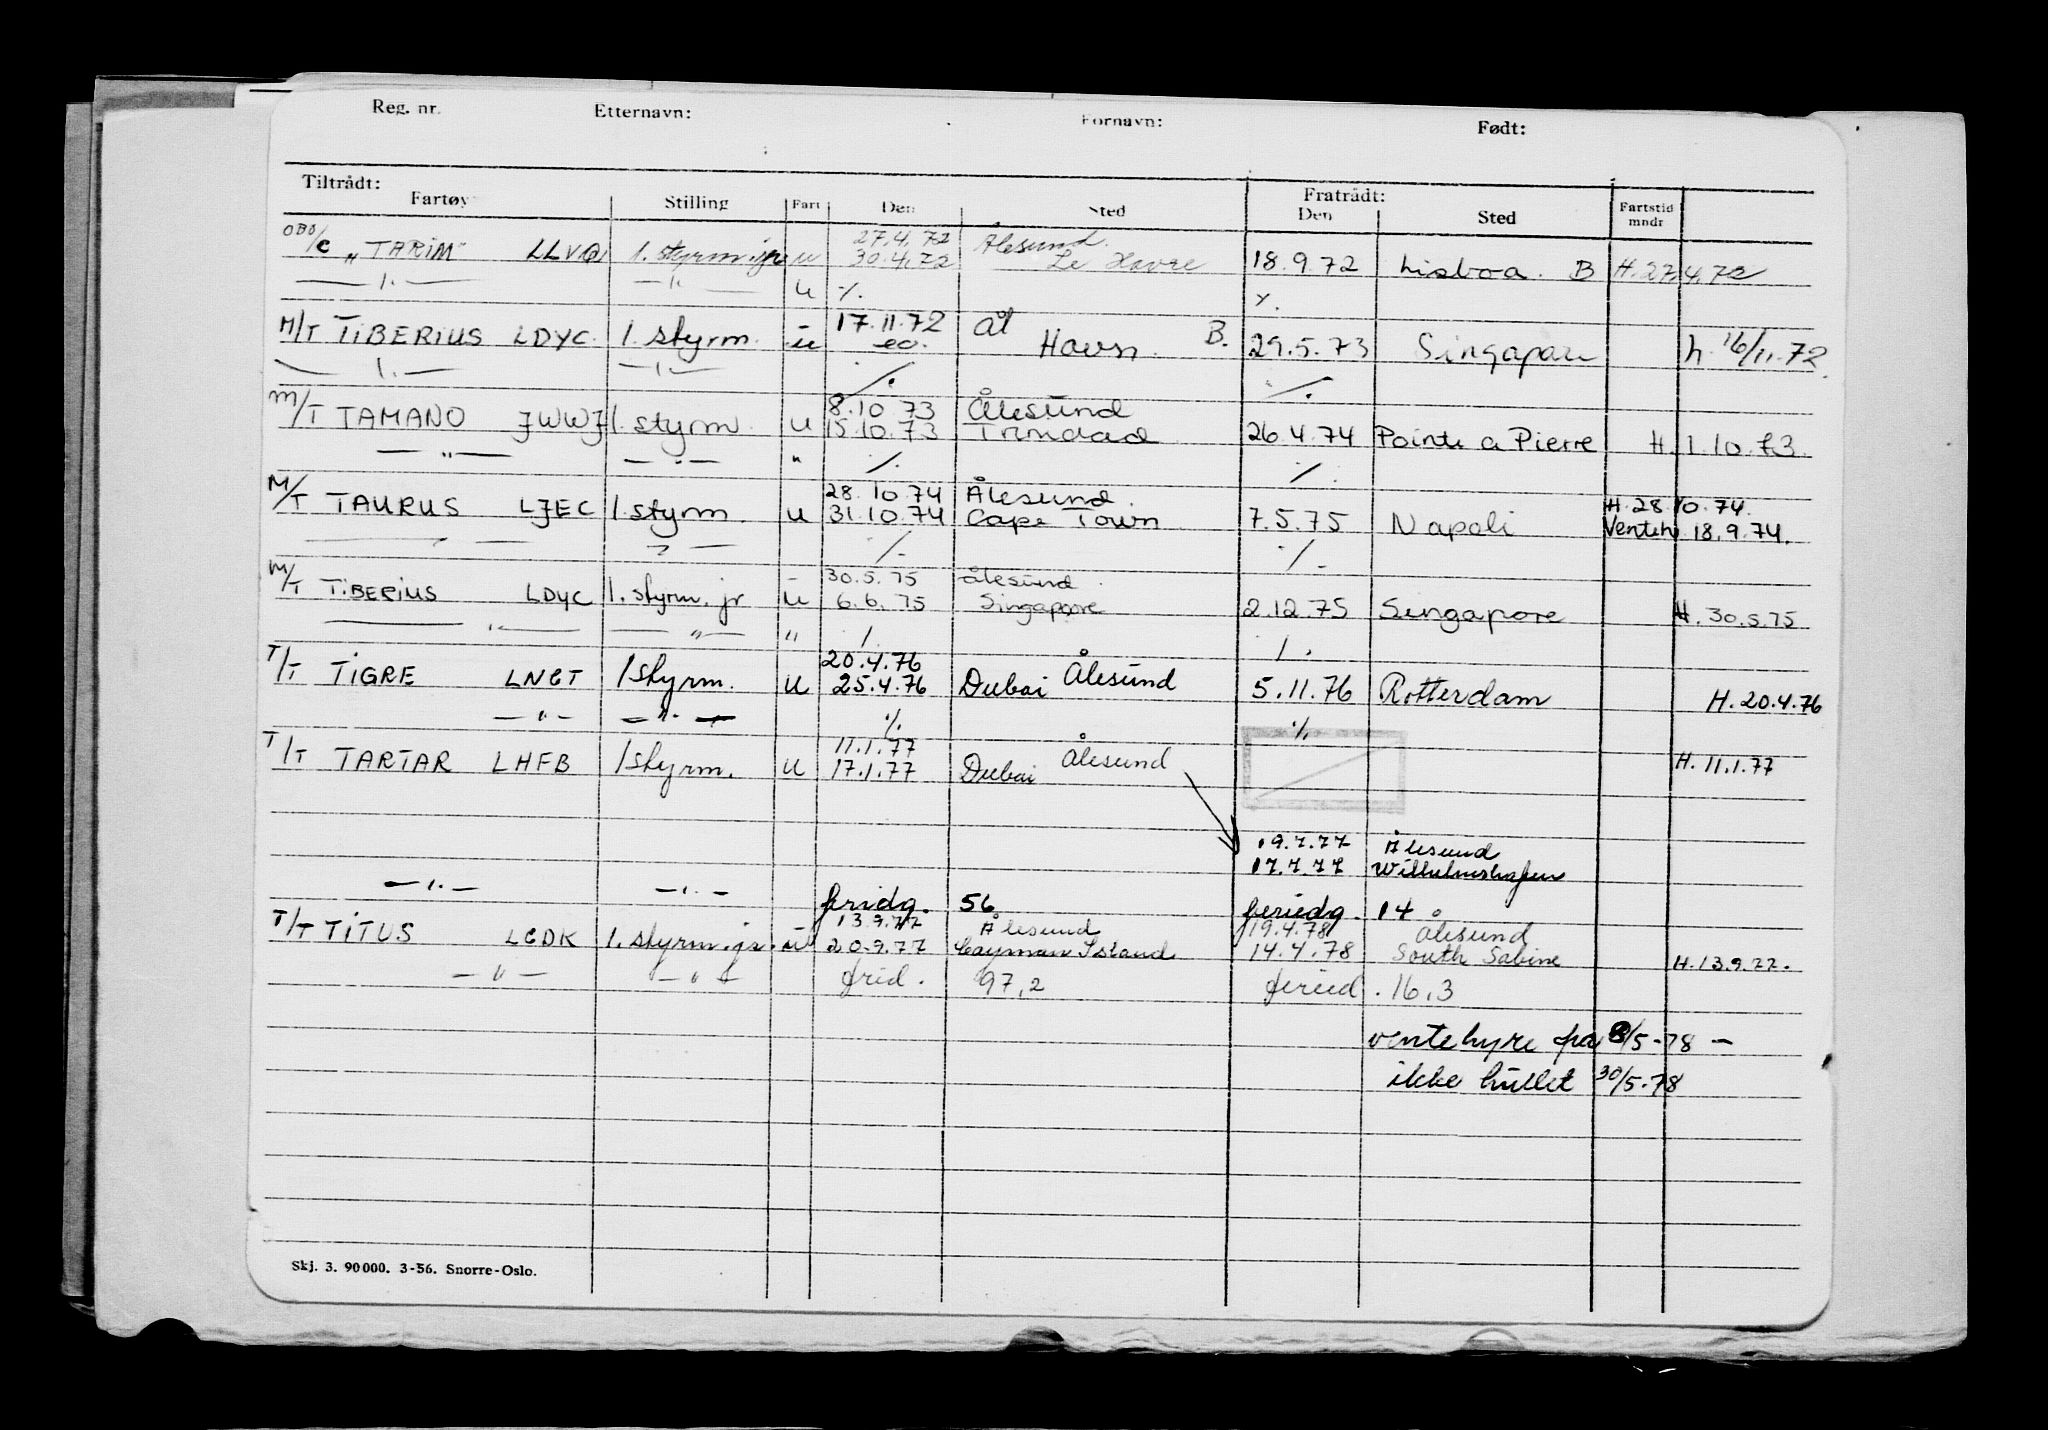 Reg. nr. Etternavn: Fornavn: Født:
Tiltrådt: Fratrådt:
Fartøy Stilling Fart Den Sted Den Sted Fartstid mndr
27.4.72 Ålesund
OBO/C „TARIM" LLVQ 1. styrm. jr u 30.4.72 Le Havre 18.9.72 Lisboa. B H. 27.4.72
— ". — — ". — u ·/. ·/.
17.11.72 Ål
M/T TIBERIUS LDYC. 1. styrm. u eo. Havn. B. 29.5.73 Singapore h. 16/11.72.
— ". — — ". — ·/. ·/.
8.10.73 Ålesund
M/T TAMANO JWWJ 1. styrm. u 15.10.73 Trinidad 26.4.74 Pointe a Pierre H. 1.10.73.
— " — — " — " ·/. ·/.
28.10.74 Ålesund. H. 28.10.74.
M/T TAURUS LJEC 1. styrm. u 31.10.74 Cape Town 7.5.75 Napoli Venteh. 18.9.74.
— " — — " — ·/. ·/.
30.5.75 Ålesund.
M/T TIBERIUS LDYC 1. styrm. jr u 6.6.75 Singapore 2.12.75 Singapore H. 30.5.75
— " — — " — " ·/. ·/.
20.4.76 Ålesund
T/T TIGRE LNGT 1 styrm. u 25.4.76 Dubai 5.11.76 Rotterdam H. 20.4.76
— " — — " — ·/. ·/.
11.1.77 Ålesund
T/T TARTAR LHFB 1 styrm. u 17.1.77 Dubai H. 11.1.77
19.7.77 Ålesund
17.7.77 Wilhelmshafen
— ". — — ". — fridg. 56 feriedg. 14
13.9.77 Ålesund 19.4.78 Ålesund
T/T TITUS LCDK 1. styrm. jr. u 20.9.77 Cayman Island 14.4.78 South Sabine H. 13.9.77.
— " — — " — frid. 97,2 feried. 16,3
ventehyre fra 8/5-78 —
ikke hullet 30/5-78
Skj. 3. 90000. 3-56. Snorre-Oslo.